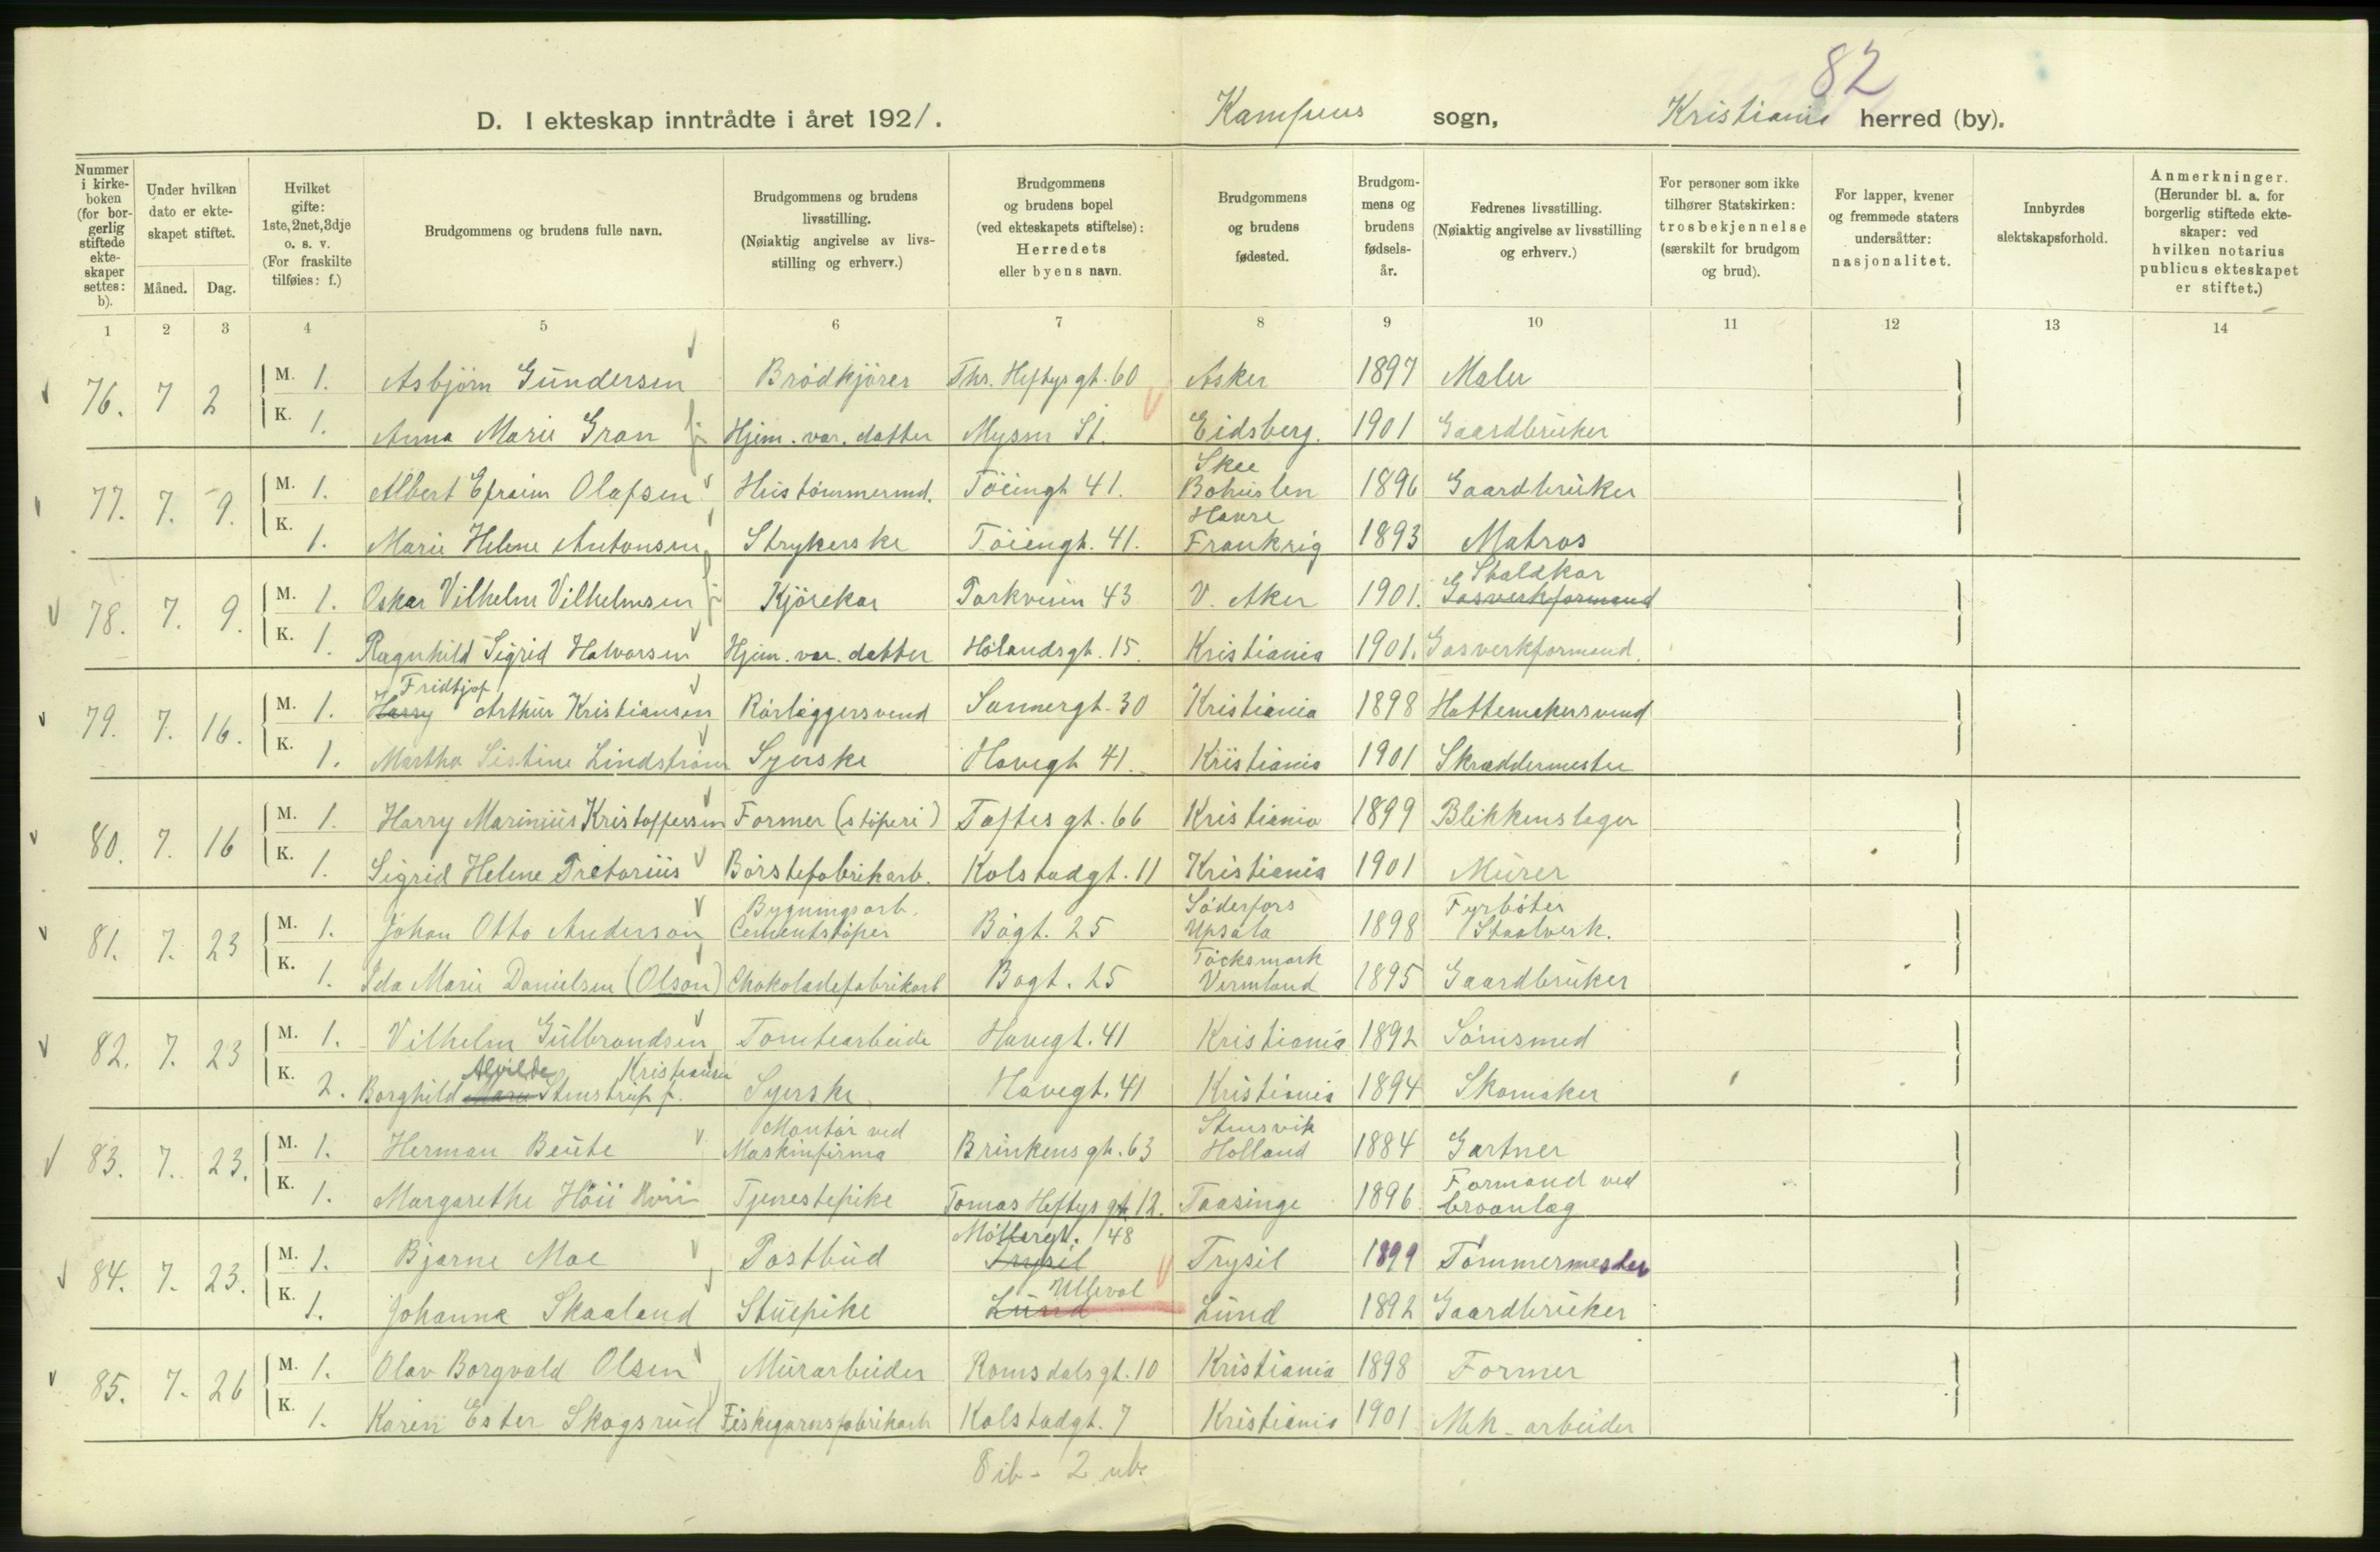 82
D. I ekteskap inntrådte i året 1921. Kampens sogn, Kristiania herred (by).
Nummer i kirkeboken (for borgerlig stiftede ekteskaper settes: b).
Under hvilken dato er ekteskapet stiftet.
Måned. Dag.
Hvilket gifte: 1ste, 2net, 3dje o. s. v. (For fraskilte tilføies: f.)
Brudgommens og brudens fulle navn.
Brudgommens og brudens livsstilling. (Nøiaktig angivelse av livsstilling og erhverv.)
Brudgommens og brudens bopel (ved ekteskapets stiftelse): Herredets eller byens navn.
Brudgommens og brudens fødested.
Brudgommens og brudens fødselsår.
Fedrenes livsstilling. (Nøiaktig angivelse av livsstilling og erhverv.)
For personer som ikke tilhører Statskirken: trosbekjennelse (særskilt for brudgom og brud).
For lapper, kvener og fremmede staters undersåtter: nasjonalitet.
Innbyrdes slektskapsforhold.
Anmerkninger. (Herunder bl. a. for borgerlig stiftede ekteskaper: ved hvilken notarius publicus ekteskapet er stiftet.)
1 2 3 4 5 6 7 8 9 10 11 12 13 14
76. 7 2 M. 1. Asbjörn Gundersen Brödkjörer Thr. Heftys gt. 60 Asker 1897 Maler
K. 1. Anna Marie Gran Hjem. var. datter Mysen St. Eidsberg. 1901 Gaardbruker
77. 7. 9. M. 1. Albert Efraim Olafsen Hustömmermd. Töiengt 41. Skee Bohuslen 1896 Gaardbruker
K. 1. Marie Helene Antonsen Strykerske Töiengt. 41. Havre Frankrig 1893 Matros
78. 7. 9. M. 1. Oskar Vilhelm Vilhelmsen Kjörekar Parkveien 43 V. Aker 1901. Staldkar Gasverkformand
K. 1. Ragnhild Sigrid Halvorsen Hjem. var. datter Hölandsgt. 15. Kristiania 1901. Gasverkformand.
79. 7. 16. M. 1. Harry Fridtjof Arthur Kristiansen Rörleggersvend Sannergt. 30 Kristiania 1898 Hattemakersvend
K. 1. Martha Sistine Lindström Syerske Havegt 41. Kristiania 1901 Skreddermester
80. 7. 16 M. 1. Harry Marinius Kristoffersen Former (støperi) Toftes gt. 66 Kristiania 1899 Blikkenslager
K. 1. Sigrid Helene Pretorius Börstefabrikarb. Kolstadgt. 11 Kristiania 1901 Murer
81. 7. 23 M. 1. Johan Otto Anderson Bygningsarb. Cementstöper Bögt. 25 Söderfors Upsala 1898 Fyrböter Staalverk.
K. 1. Ida Marie Danielsen (Olson) Chokoladefabrikarb Bögt. 25 Töcksmark Vermland 1895 Gaardbruker
82. 7. 23 M. 1. Vilhelm Gulbrandsen Tomtearbeide Havegt. 41 Kristiania 1892 Sömsmed
K. 2. Borghild Alvilde Marie Stenstrup f. Kristiansen Syerske Havegt. 41 Kristiania 1894 Skomaker
83. 7. 23. M. 1. Herman Beute Montör ved Maskinfirma Brinkens gt. 63 Stensvik Holland 1884 Gartner
K. 1. Margarethe Höii Tjenestepike Tomas Heftys gt. 12. Taasinge 1896 Formand ved broanlæg
84. 7. 23. M. 1. Bjarne Moe Postbud Möllergt. 48 Trysil Trysil 1899 Tömmermester
K. 1. Johanne Skaaland Stuepike Ulleval Lund Lund 1892 Gaardbruker
85. 7. 26 M. 1. Olav Borgvald Olsen Murarbeider Romsdals gt. 10 Kristiania 1898 Former
K. 1. Karen Ester Skogsrud Fiskegarnsfabrikarb Kolstadgt. 7 Kristiania 1901 Mek. arbeider
8 ib - 2 ub.